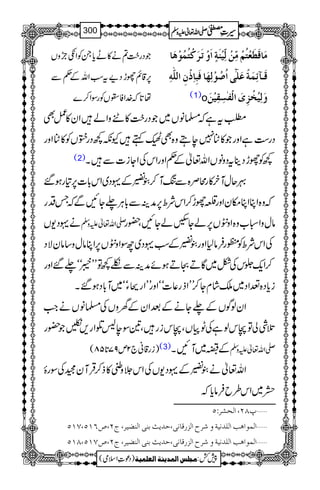 سیرتِ مصطفیٰ صلی اللہ تعالیٰ علیہ وسلم
300
مَا قَطَعْتُمْ مِّنْ لِّیْنَةٍ اَوْ تَرَكْتُمُوْهَا
قَآىٕمَةً عَلٰۤى اُصُوْلِهَا فَبِاِذْنِ اللّٰهِ
وَ لِیُخْزِیَ الْفٰسِقِیْنَo (1)
جو درخت تم نے کاٹے یا جن کو انکی جڑوں
پر قائم چھوڑ دیے یہ سب اللہ کے حکم سے
تھا تاکہ خدا فاسقوں کو رسوا کرے
مطلب یہ ہے کہ مسلمانوں میں جو درخت کاٹنے والے ہیں ان کا عمل بھی
درست ہے اور جو کاٹنا نہیں چاہتے وہ بھی ٹھیک کہتے ہیں کیونکہ کچھ درختوں کو کاٹنا اور
کچھ کو چھوڑ دینا یہ دونوں اللہ تعالیٰ کے حکم اور اس کی اجازت سے ہیں۔ (2)
بہرحال آخرکار محاصرہ سے تنگ آ کر بنو نضیر کے یہودی اس بات پر تیار ہو گئے
کہ وہ اپنا اپنا مکان اور قلعہ چھوڑ کر اس شرط پر مدینہ سے باہر چلے جائیں گے کہ جس قدر
مال و اسباب وہ اونٹوں پر لے جا سکیں لے جائیں، حضور صلی اللہ تعالیٰ علیہ وسلم نے یہودیوں
کی اس شرط کو منظور فرمالیا اور بنو نضیر کے سب یہودی چھ سو اونٹوں پر اپنا مال و سامان لاد
کر ایک جلوس کی شکل میں گاتے بجاتے ہوئے مدینہ سے نکلے کچھ تو ”خیبر“ چلے گئے اور
زیادہ تعداد میں ملک شام جا کر ”اذرعات“ اور ”اریحاء“ میں آباد ہو گئے۔
ان لوگوں کے چلے جانے کے بعد ان کے گھروں کی مسلمانوں نے جب
تلاشی لی تو پچاس لوہے کی ٹوپیاں، پچاس زرہیں، تین سو چالیس تلواریں نکلیں جو حضور
صلی اللہ تعالیٰ علیہ وسلم کے قبضہ میں آئیں۔ (3) (زرقانی ج۲ ص۷۹ تا ۸۵)
اللہ تعالیٰ نے بنو نضیر کے یہودیوں کی اس جلا وطنی کا ذکر قرآن مجید کی سورۂ
حشر میں اس طرح فرمایا کہ
......پ۲۸،الحشر:۵
......المواهب اللدنية و شرح الزرقانى،حديث بنى النضير، ج۲،ص۵۱۶،۵۱۷
......المواهب اللدنية و شرح الزرقانى،حديث بنى النضير، ج۲،ص۵۱۷،۵۱۸
پیش کش: مجلس المدينة العلمية (دعوتِ اسلامی)